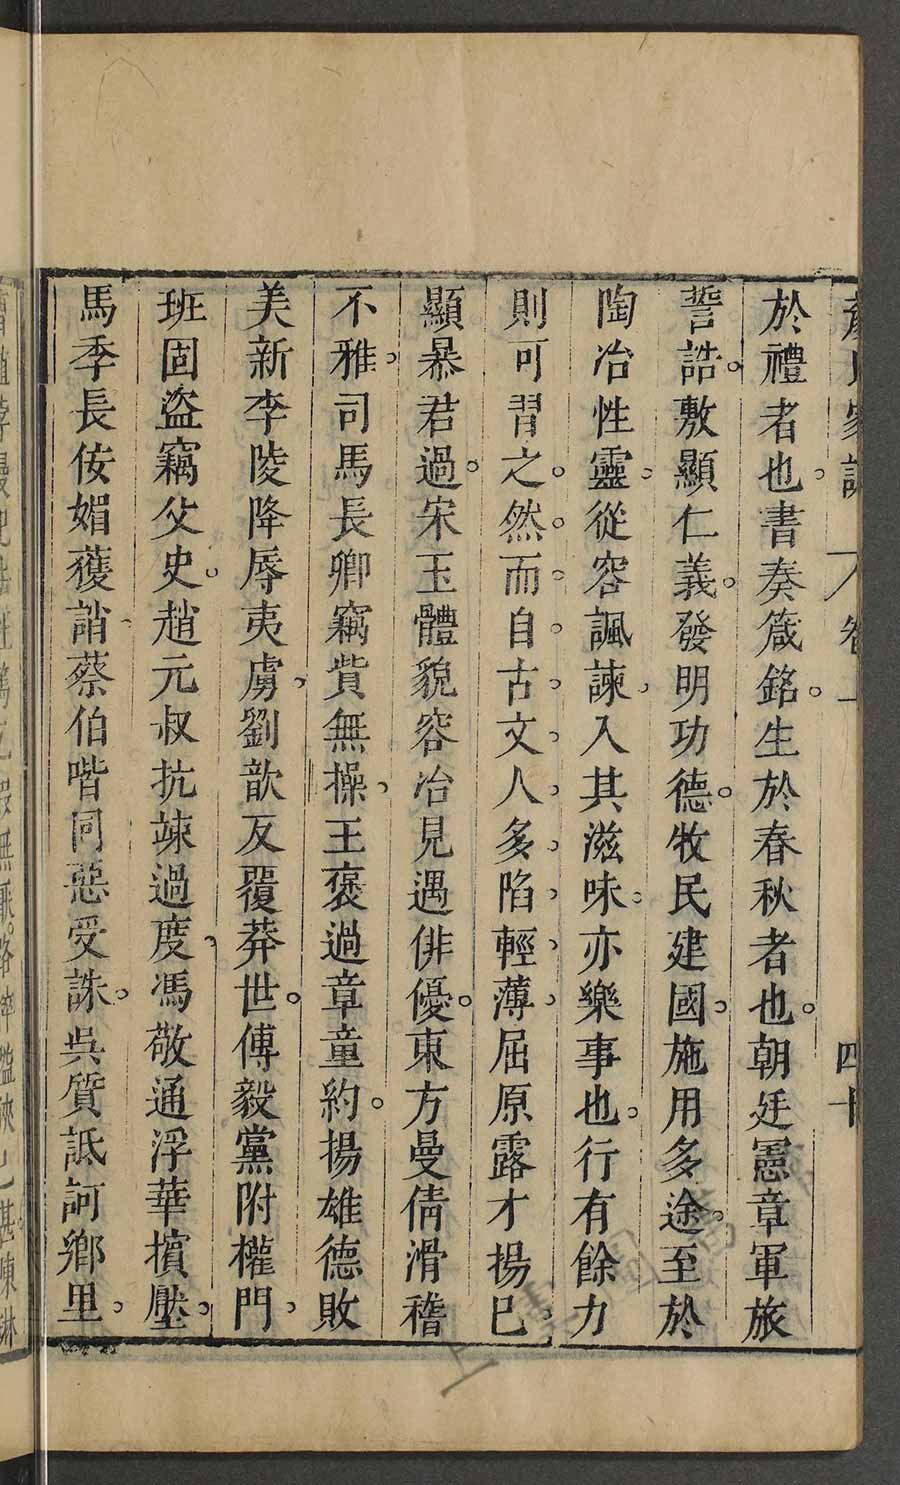 顏氏家訓 卷上 四十
於禮者也書奏箴銘生於春秋者也朝廷憲章軍旅
誓誥敷顯仁義發明功德牧民建國施用多途至於
陶冶性靈從容諷諫入其滋味亦樂事也行有餘力
則可習之然而自古文人多陷輕薄屈原露才揚已
顯暴君過宋玉體貌容冶見遇俳優東方曼倩滑稽
不雅司馬長卿竊貲無操王褒過章童約揚雄德敗
美新李陵降辱夷虜劉歆反覆莽世傅毅黨附權門
班固盜竊父史趙元叔抗竦過度馮敬通浮華擯壓
馬季長佞媚獲誚蔡伯喈同惡受誅吳質詆訶鄉里